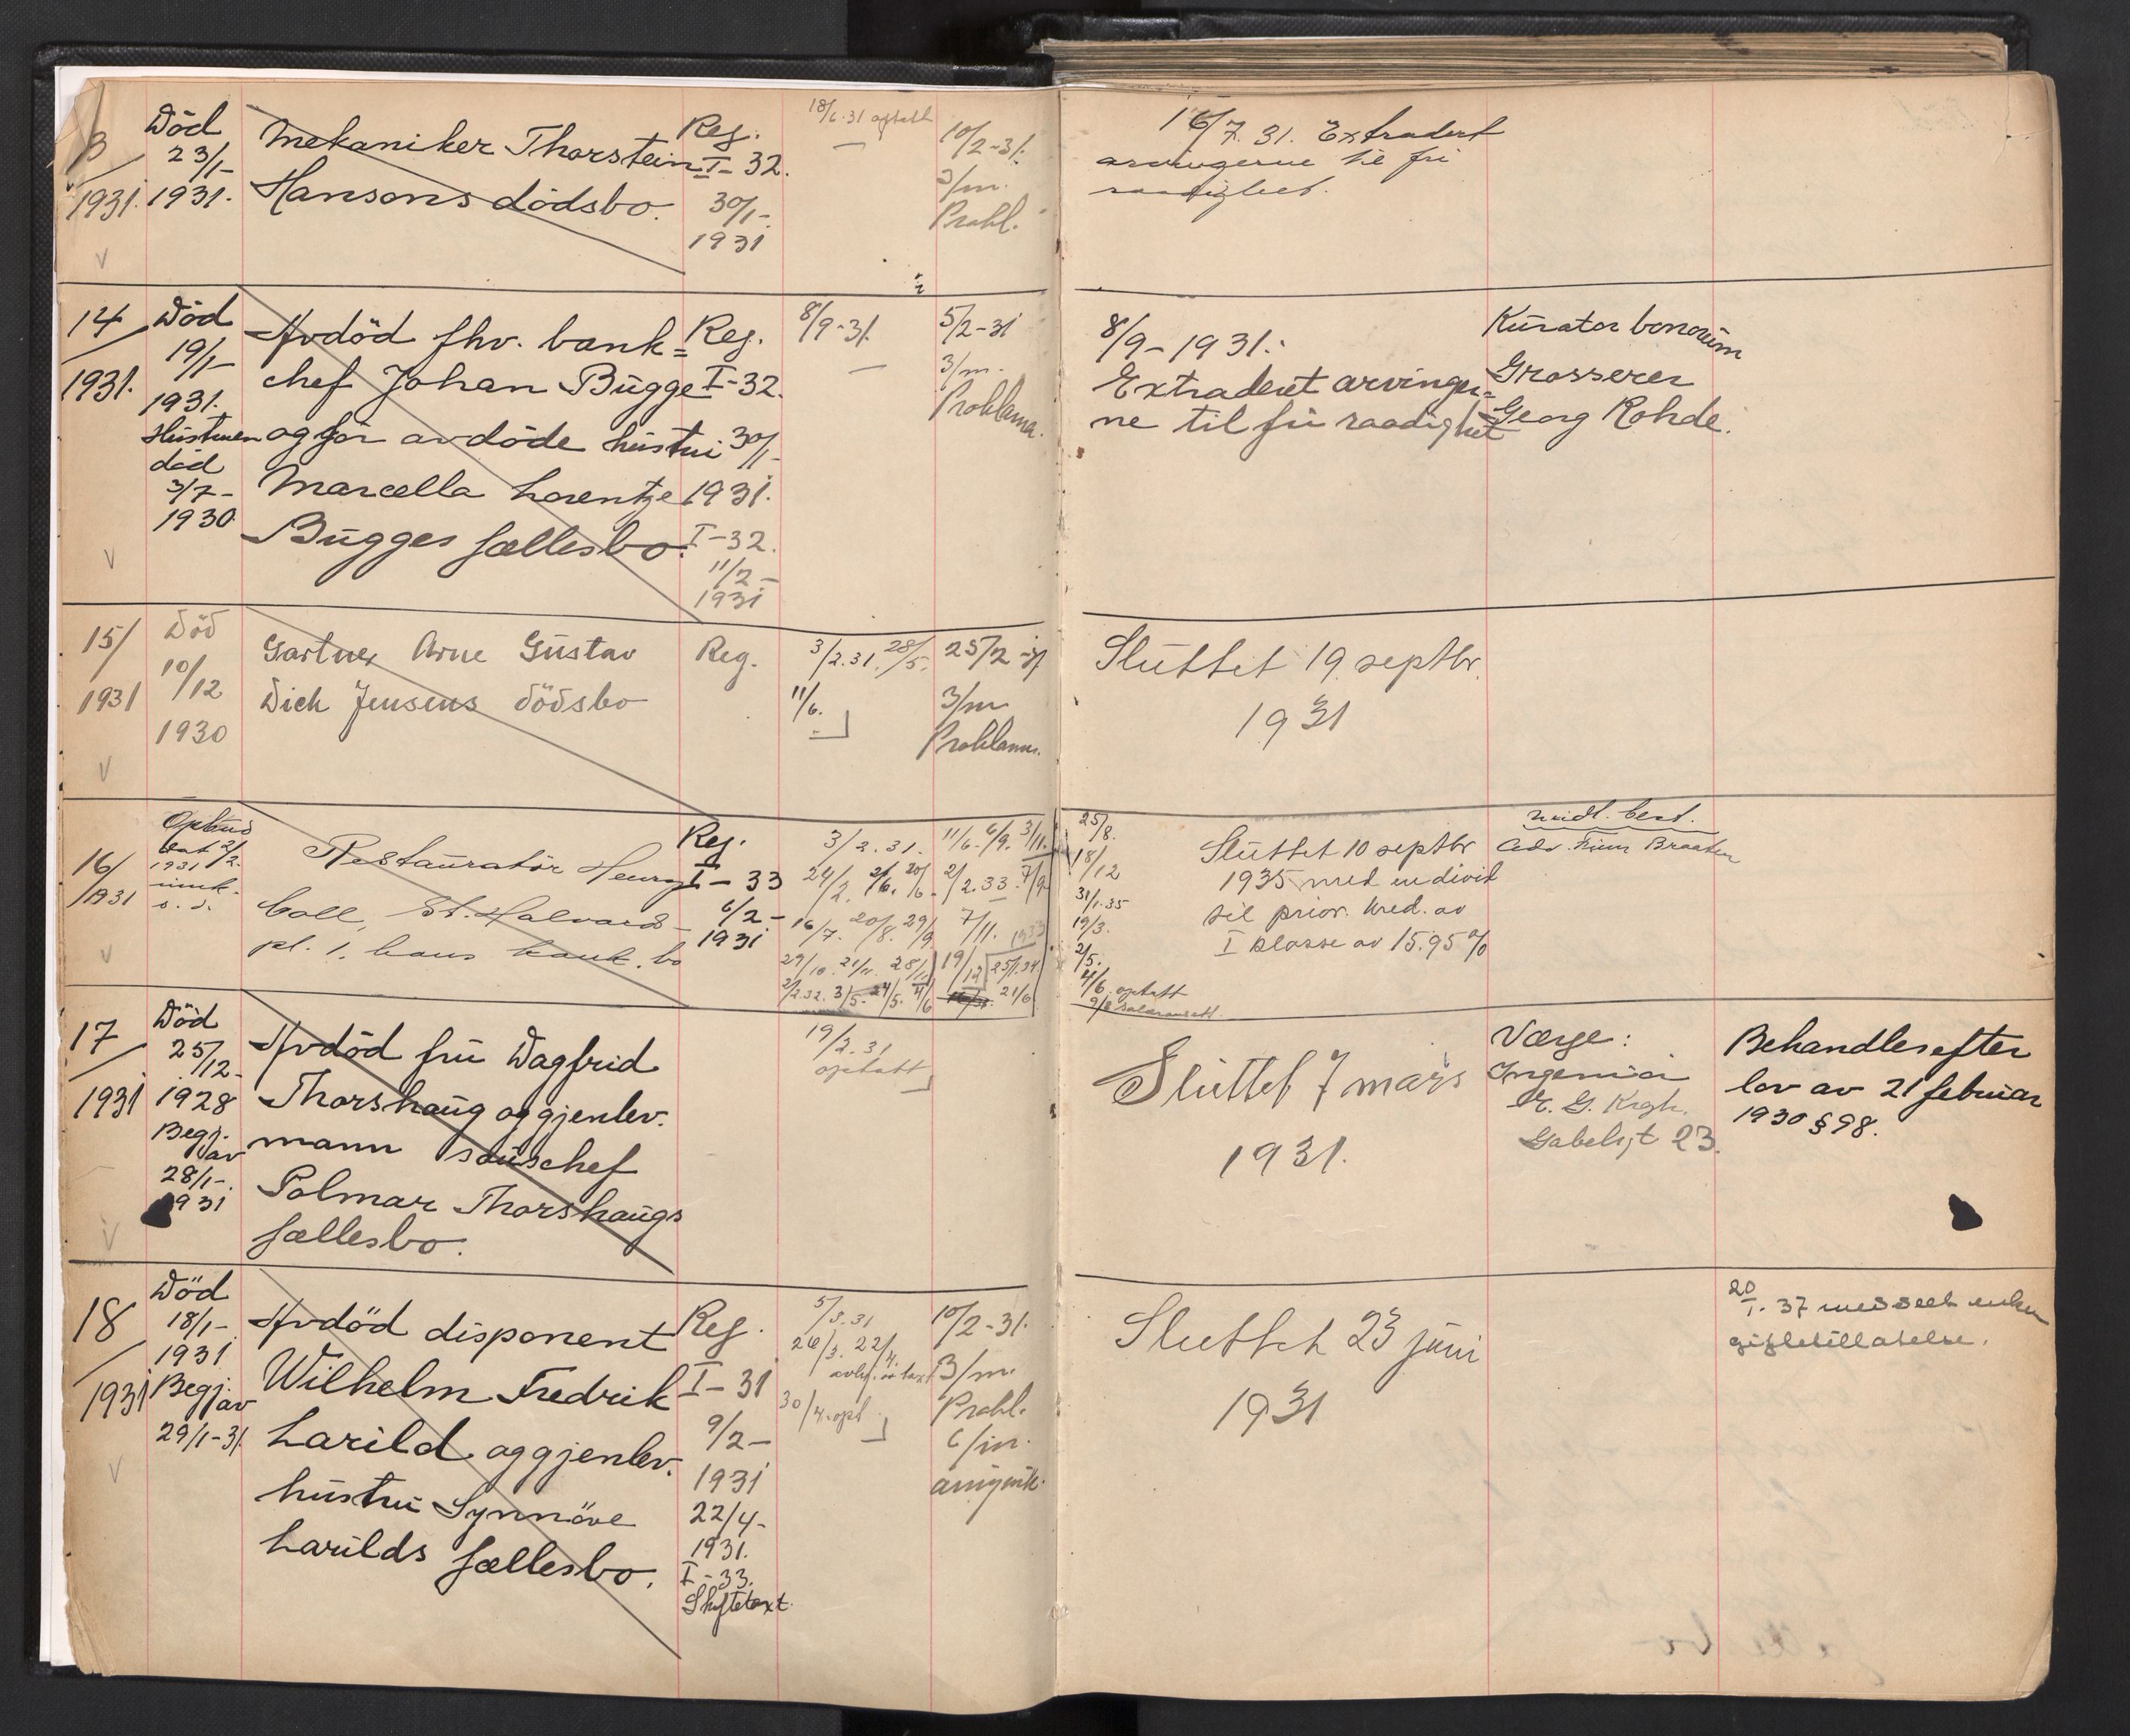 13/1931.
Död
23/1-
1931.
Mekaniker Thorstein
Hansons dödsbo.
Reg.
I-32.
30/1-
1931
18/6-31 optatt
10/2-31.
3/m.
Prokl.
16/7. 31. Extradert
arvingerne til fri
raadighet.
14
1931.
Död
19/1-
1931.
Hustruen
död
3/7-
1930
Avdöd fhv. bank=
chef Johan Bugge
og før avdöde hustru
Marcella Lorentze
Bugges fællesbo.
Reg.
I-32.
30/1-
1931.
I-32.
11/2-
1931
8/9-31.
5/2-31
3/m.
Proklama.
8/9-1931.
Extraderet arvinger=
ne til fri raadighet
Kurator bonorum
Grosserer
Georg Rohde.
15/
1931
Död
10/12
1930
Gartner Arne Gustav
Dick Jensens dödsbo
Reg.
3/2.31. 28/5.
11/6.
25/2-31
3/m
Proklama.
Sluttet 19. septbr.
1931
16/
1931
1931
Restauratör Henry
Coll, St. Halvards-
pl. 1, hans konk.bo
Reg.
I-33
6/2-
1931
3/2.31. 11/6. 6/9. 3/11.
24/2. 2/6. 20/6. 2/2.33. 7/9
16/7. 20/8. 29/9 7/11. 1933
29/10. 21/11. 28/11 19/12 25/1.34.
2/2.32. 3/5. 24/5. 4/6 21/6
25/8.
18/12
31/1.35
19/3.
2/5.
4/6. optatt
Sluttet 10 septbr
1935 med en divid
til prior. kred. av
I klasse av 15.95%
midl. best.
Adv. Finn Braaten
17
1931
Död
25/12-
1928
Begj.
av
28/1-
1931
Avdöd fru Dagfrid
Thorshaug og gjenlev.
mann souschef
Polmar Thorshaugs
fællesbo.
19/2.31
optatt
Sluttet 7 mars
1931.
Værge:
Ingeniör
Gabelsgt 23.
Behandles efter
lov av 21 februar
1930 § 98.
18
1931
Död
18/1-
1931
Begj.
av
29/1-31
Avdöd disponent
Wilhelm Fredrik
Larild og gjenlev.
hustru Synnöve
Larilds fællesbo.
Reg.
I-31
9/2-
1931
22/4-
1931.
I-33.
Skiftetaxt.
5/3.31
26/3. 22/4.
30/4. opt
10/2-31.
3/m.
Prokl.
6/m.
Sluttet 23 juni
1931
20/1. 37 meddelt enken
giftetillatelse.